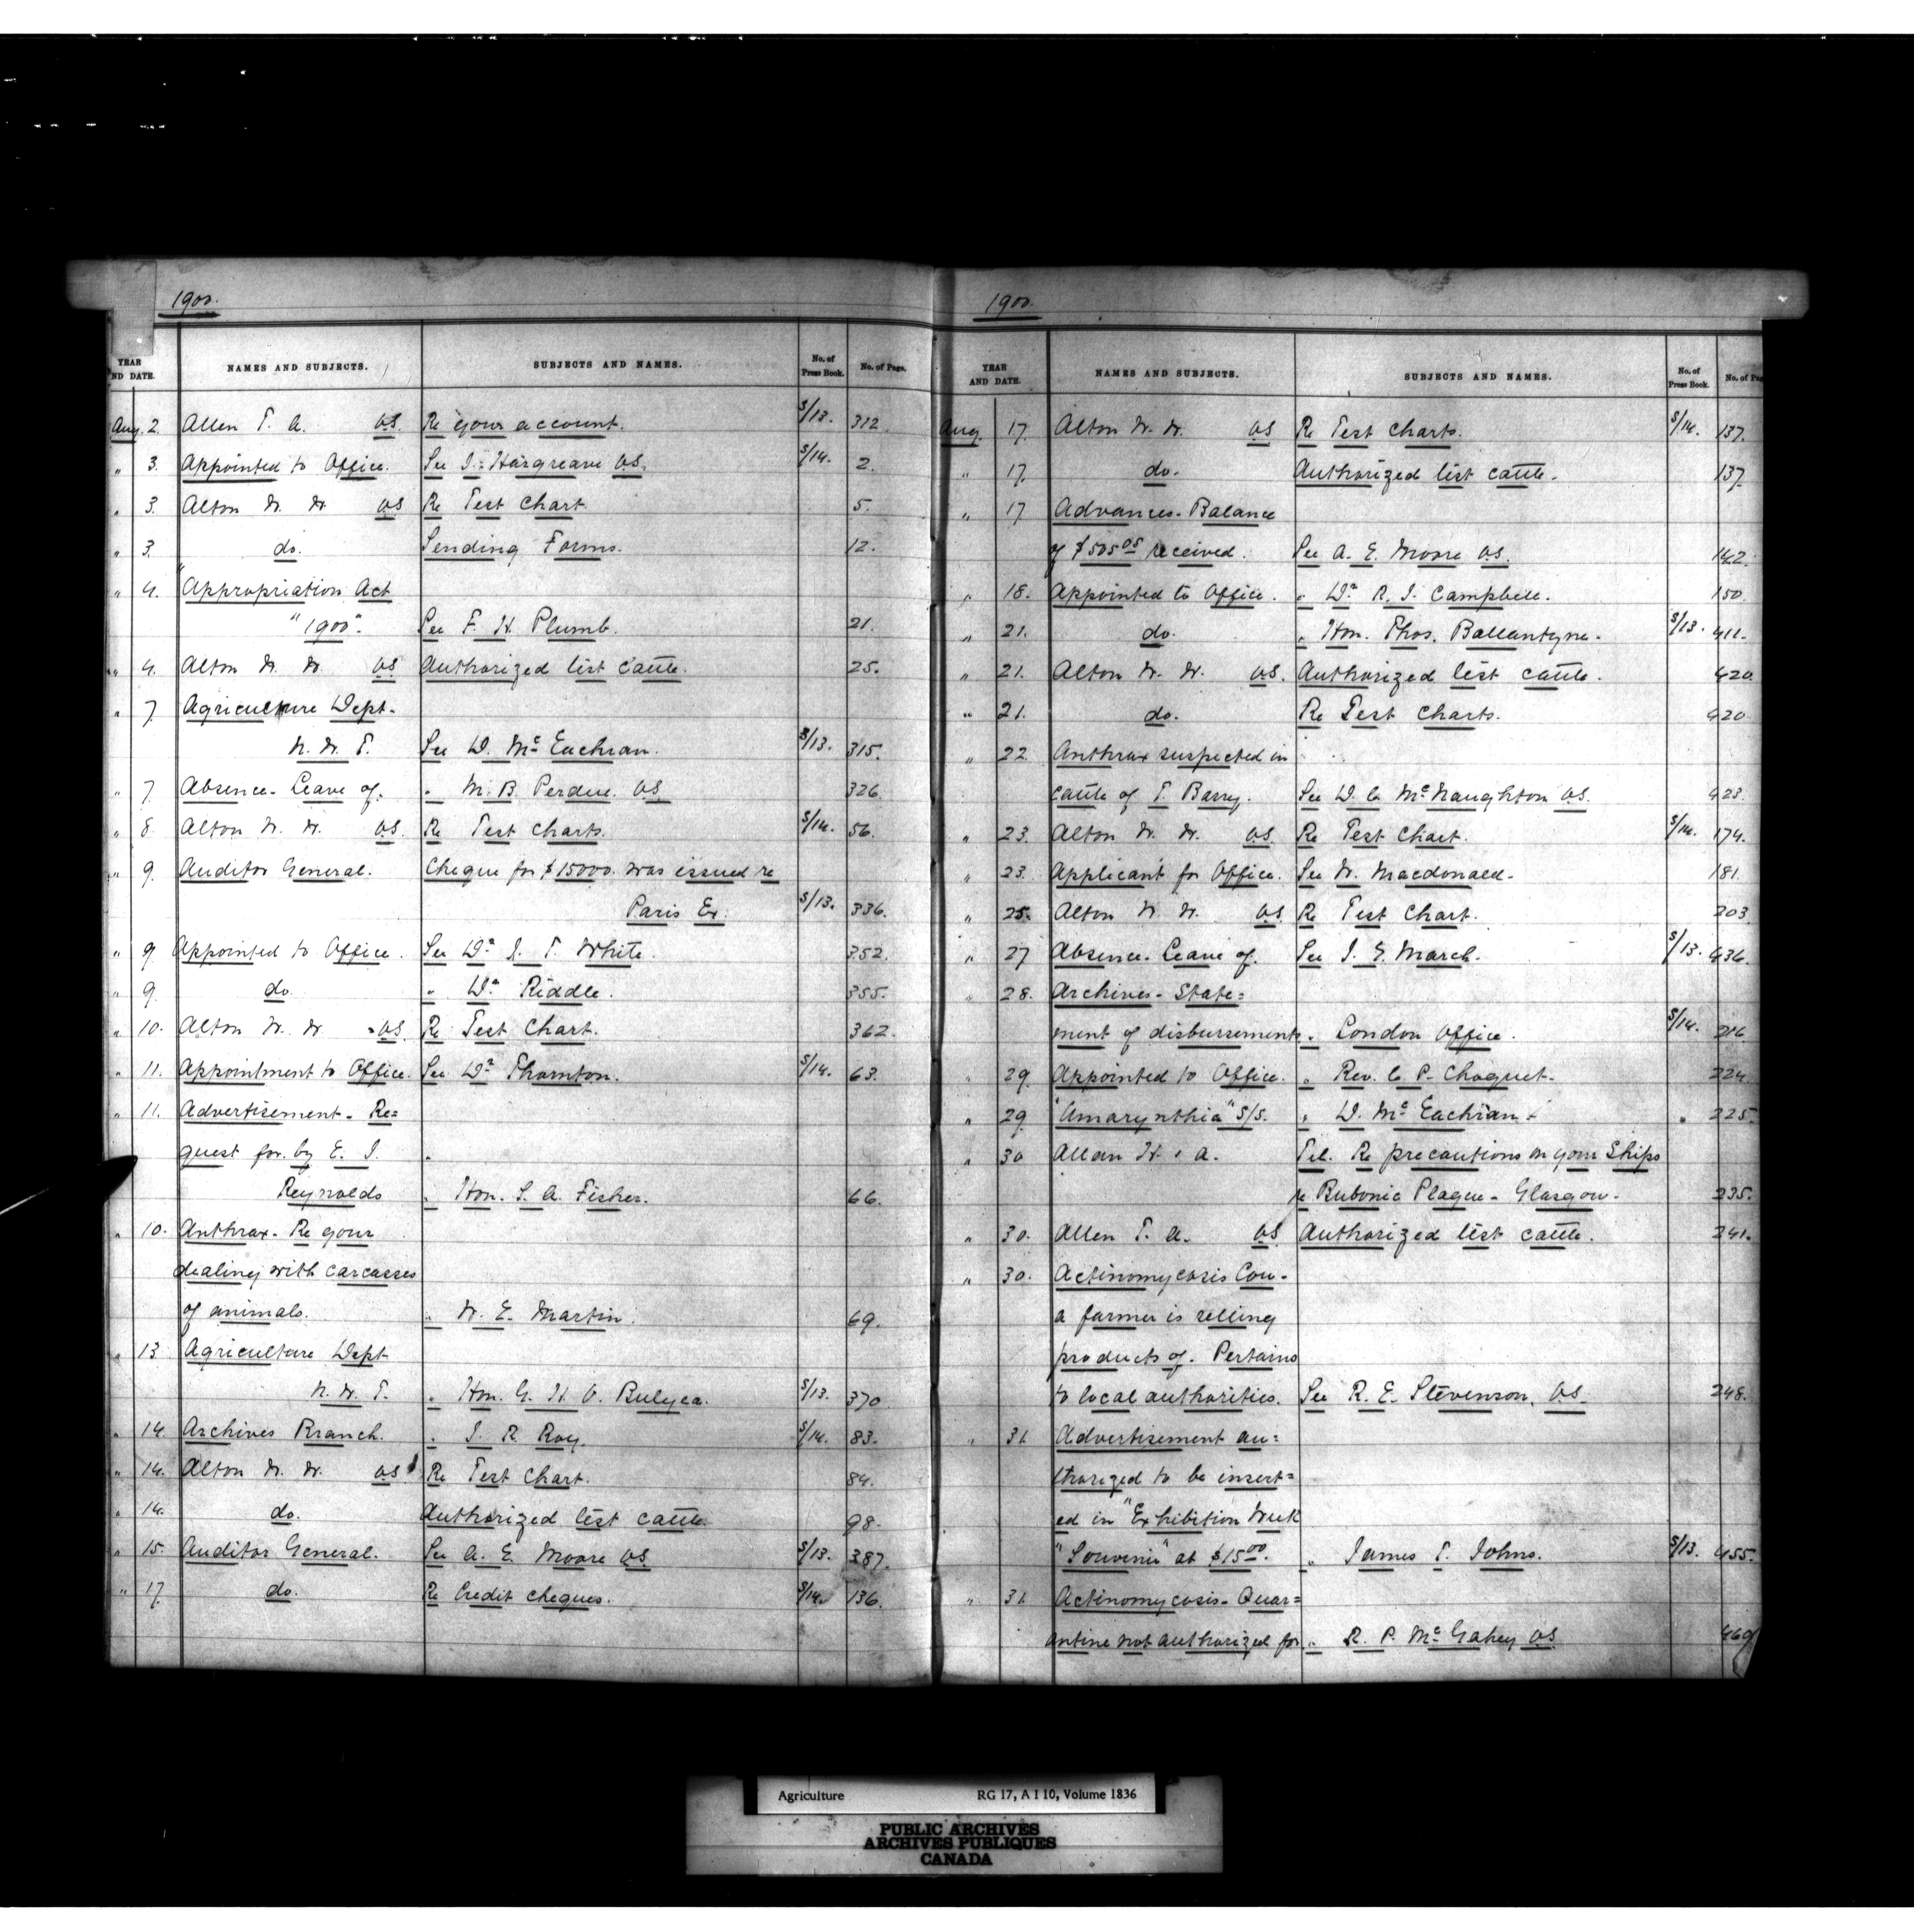 1900.
YEAR AND DATE. NAMES AND SUBJECTS. SUBJECTS AND NAMES. No. of Press Book. No. of Page.
Aug. 2. Allen T. A. V.S. Re your account. S/13. 312.
" 3. Appointed to Office. See J. Hargreave V.S. S/14. 2.
" 3. Alton W. W. V.S Re Test Chart. 5.
" 3. do. Sending Forms. 12.
" 4. "Appropriation Act
"1900". See F. H. Plumb. 21.
" 4. Alton W. W. V.S Authorized list cattle. 25.
" 7. Agriculture Dept.
N. W. T. See D. McEachran. S/13. 315.
" 7. Absence - Leave of. " M. B. Perdue. V.S 326.
" 8. Alton W. W. V.S. Re Test Charts. S/14. 56.
" 9. Auditor General. Cheque for $15000. was issued re
Paris Ex. S/13. 336.
" 9. Appointed to Office. See Dr. J. T. White. 352.
" 9. do. " Dr. Riddle. 355.
" 10. Alton W. W. V.S. Re Test Chart. 362.
" 11. Appointment to Office. See Dr. Thornton. S/14. 63.
" 11. Advertisement - Re=
quest for. by E. J. "
Reynolds " Hon. S. A. Fisher. 66.
" 10. Anthrax - Re your
dealing with carcasses
of animals. " W. E. Martin. 69.
" 13 Agriculture Dept
N. W. T. " Hon. G. H. V. Bulyea. S/13. 370
" 14. Archives Branch. " J. R. Roy. S/14. 83.
" 14. Alton W. W. V.S Re Test Chart. 84.
" 14. do. Authorized list cattle. 98.
" 15. Auditor General. See A. E. Moore V.S. S/13. 387.
" 17. do. Re Credit cheques. S/14. 136.
1900.
YEAR AND DATE. NAMES AND SUBJECTS. SUBJECTS AND NAMES. No. of Press Book. No. of Pag
Aug. 17. Alton W. W. V.S Re Test Charts. S/14. 137.
" 17. do. Authorized list cattle. 137.
" 17 Advances - Balance
of $505 05 received. See A. E. Moore V.S. 142.
" 18. Appointed to Office. " Dr. R. J. Campbell. 150.
" 21. do. " Hon. Thos. Ballantyne. S/13. 411.
" 21. Alton W. W. V.S. Authorized list cattle. 420.
" 21. do. Re Test Charts. 420.
" 22. Anthrax suspected in
cattle of T. Barry. See D. C. McNaughton V.S. 423.
" 23. Alton W. W. V.S. Re Test Chart. S/14. 174.
" 23. Applicant for Office. See W. Macdonald. 181.
" 25. Alton W. W. V.S Re Test Chart. 203.
" 27 Absence - Leave of. See J. E. March. S/13. 436.
" 28. Archives - State=
ment of disbursements. " London Office. S/14. 216
" 29. Appointed to Office. " Rev. C. P. Choquet. 224.
" 29. "Amarynthia" S/S. " D. McEachran. " 225.
" 30 Allan H. & A. Tel. Re precautions on your Ships
re Bubonic Plague - Glasgow. 235.
" 30. Allen T. A. V.S Authorized list cattle. 241.
" 30. Actinomycosis Cow -
a farmer is selling
products of. Pertains
to local authorities. See R. E. Stevenson. V.S. 248.
" 31. Advertisement au=
thorized to be insert=
ed in "Exhibition Week
"Souvenir" at $15.00. " James T. Johns. S/13. 455.
" 31. Actinomycosis - Quar=
antine not authorized for. " R. P. McGahey V.S 469
Agriculture RG 17, A I 10, Volume 1836
PUBLIC ARCHIVES
ARCHIVES PUBLIQUES
CANADA